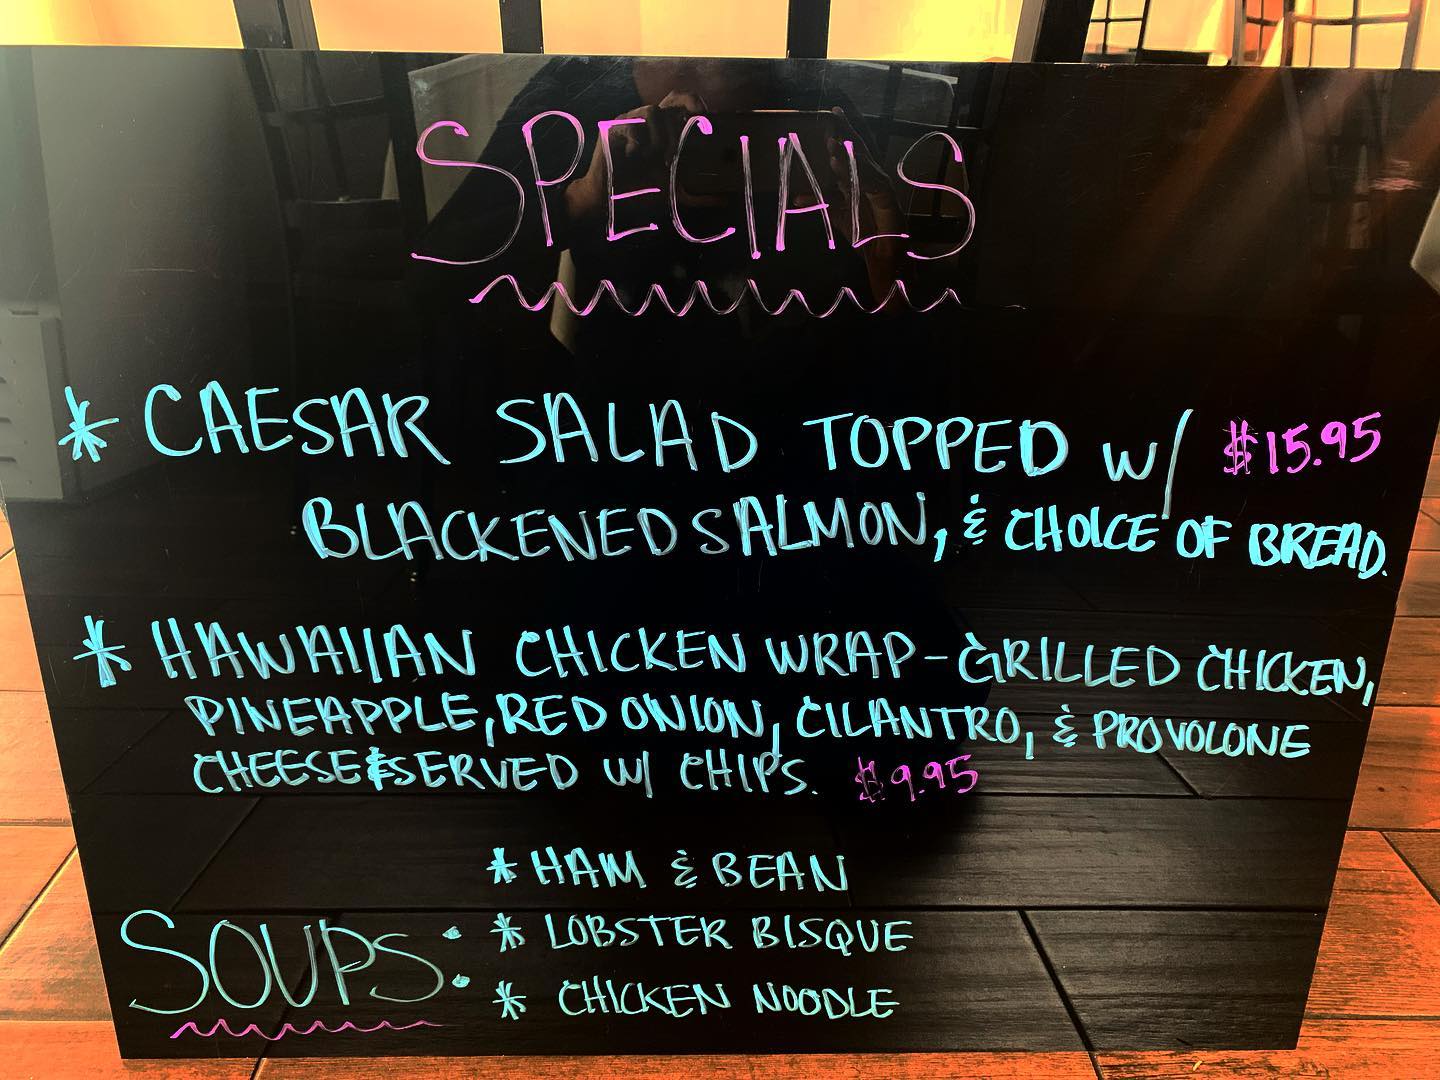 SPECIALS
* CAESAR SALAD TOPPED W/ $15.95
BLACKENED SALMON, & CHOICE OF BREAD.
* HAWAIIAN CHICKEN WRAP - GRILLED CHICKEN,
PINEAPPLE, RED ONION, CILANTRO, & PROVOLONE
CHEESE & SERVED W/ CHIPS. $9.95
SOUPS:
* HAM & BEAN
* LOBSTER BISQUE
* CHICKEN NOODLE